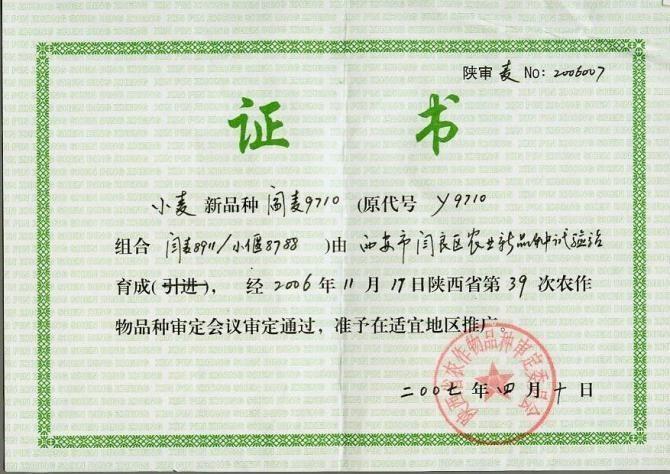 陕审 麦 No: 2006007
证 书
小麦 新品种 阎麦9710 (原代号 y9710
组合 闫麦8911/小偃8788 )由 西安市闫良区农业新品种试验站
育成(引进), 经 2006 年 11 月 17 日陕西省第 39 次农作
物品种审定会议审定通过，准予在适宜地区推广。
陕西省农作物品种审定委员会
二00七 年 四 月 十 日